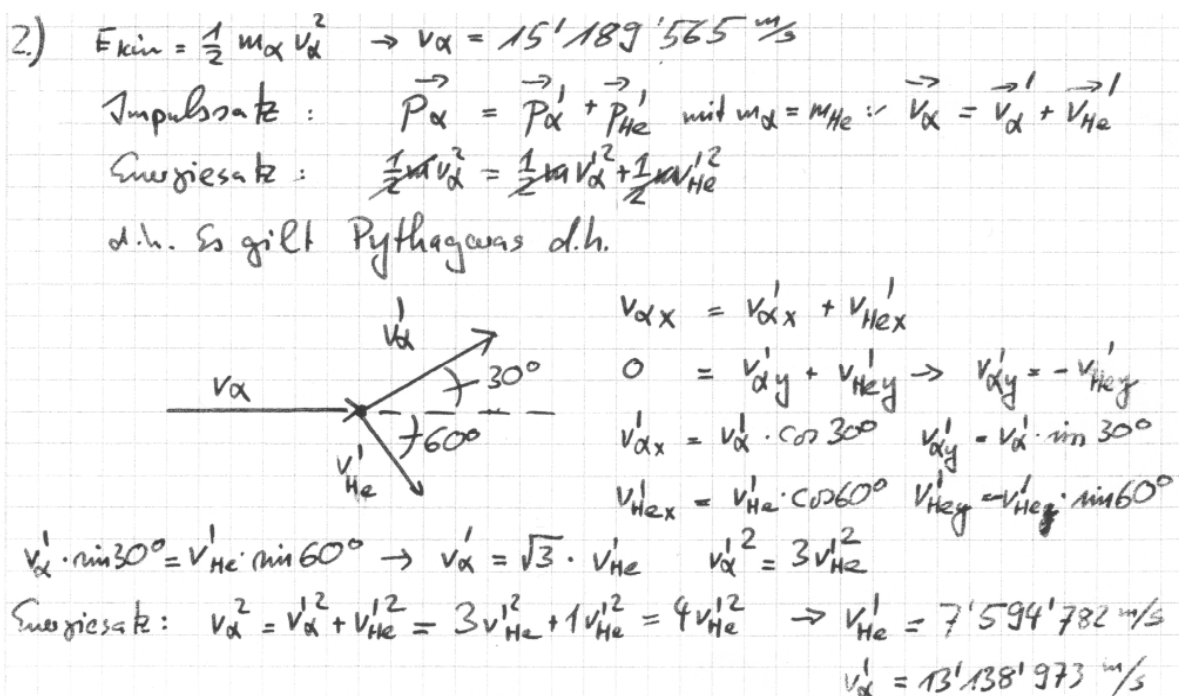 2.) E_kin = 1/2 m_α v_α² → v_α = 15'189'565 m/s
Impulssatz : p⃗_α = p⃗_α' + p⃗_He' mit m_α = m_He : v⃗_α = v⃗_α' + v⃗_He'
Energiesatz : 1/2 m v_α² = 1/2 m v_α'² + 1/2 m v_He'²
d.h. Es gilt Pythagoras d.h.
v_αx = v_αx' + v_Hex'
0 = v_αy' + v_Hey' → v_αy' = - v_Hey'
v_αx' = v_α' · cos 30° v_αy' = v_α' · sin 30°
v_Hex' = v_He' · cos 60° v_Hey' = v_Hey' · sin 60°
v_α
v_α'
30°
60°
v_He'
v_α' · sin 30° = v_He' · sin 60° → v_α' = √3 · v_He' v_α'² = 3 v_He'²
Energiesatz : v_α² = v_α'² + v_He'² = 3 v_He'² + 1 v_He'² = 4 v_He'² → v_He' = 7'594'782 m/s
v_α' = 13'138'973 m/s